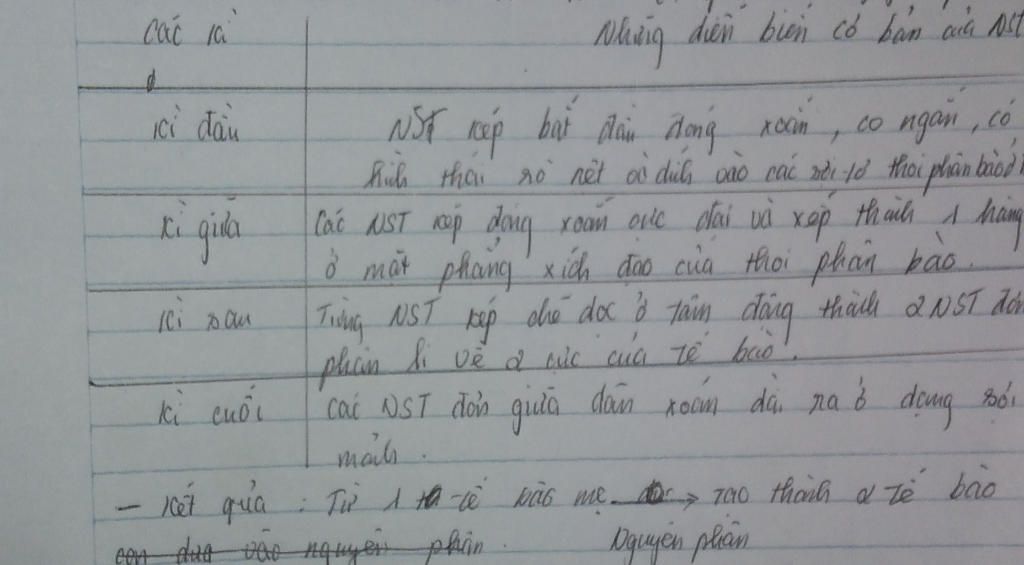 Các kì Những diễn biến cơ bản của NST
Kì đầu NST kép bắt đầu đóng xoắn, co ngắn, có
hình thái rõ nét và dính vào các sợi tơ thoi phân bào ở
Kì giữa Các NST kép đóng xoắn cực đại và xếp thành 1 hàng
ở mặt phẳng xích đạo của thoi phân bào.
Kì sau Từng NST kép chẻ dọc ở tâm động thành 2 NST đơn
phân li về 2 cực của tế bào.
Kì cuối các NST đơn giữa dãn xoắn dài ra ở dạng sợi
mảnh.
- Kết quả: Từ 1 tế bào mẹ → tạo thành 2 tế bào
con dựa vào nguyên phân. Nguyên phân